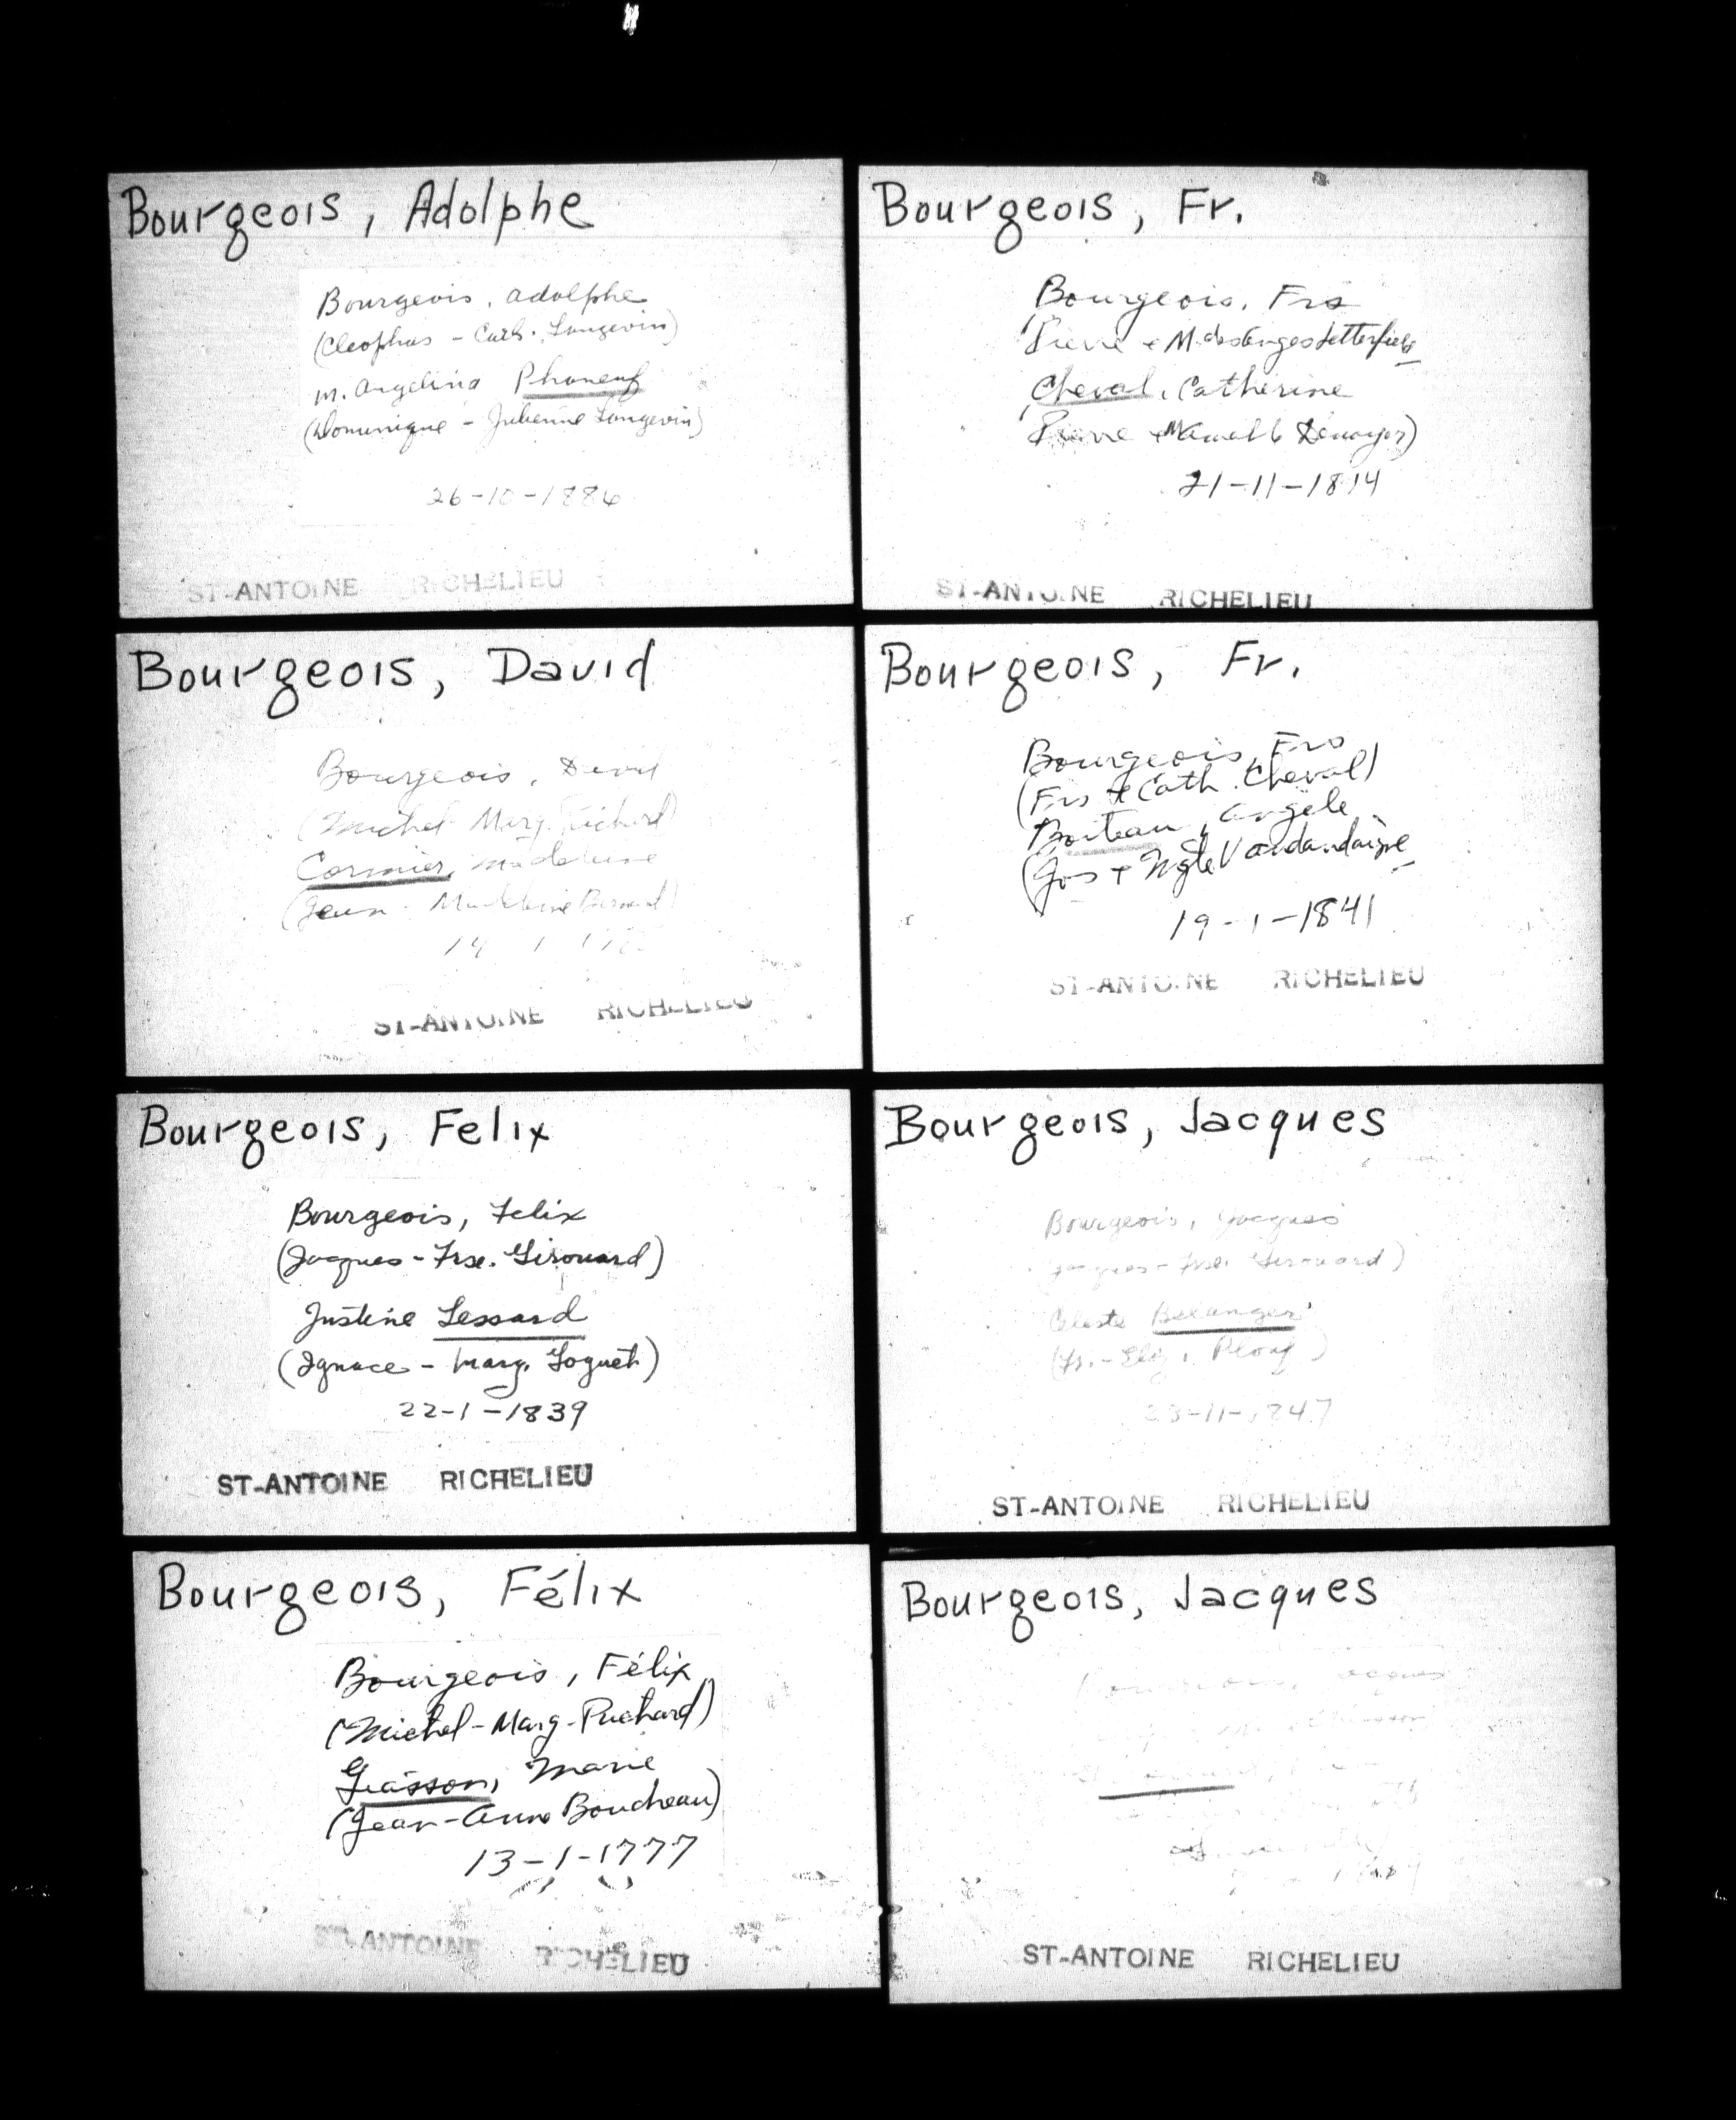 Bourgeois, Adolphe
Bourgeois, Adolphe
(Cleophas - Cath. Langevin)
m. Angelina Phaneuf
(Dominique - Julienne Langevin)
26-10-1886
ST-ANTOINE RICHELIEU
Bourgeois, David
Bourgeois, David
(Michel Marg. Richard)
Cormier, Madeleine
(Jean
ST-ANTOINE RICHELIEU
Bourgeois, Felix
Bourgeois, Felix
(Jacques - Frse. Girouard)
Justine Lessard
(Ignace - Marg. Goguet)
22-1-1839
ST-ANTOINE RICHELIEU
Bourgeois, Félix
Bourgeois, Félix
(Michel - Marg. Richard)
Giasson, Marie
(Jean - Anne Boucheau)
13-1-1777
ST-ANTOINE RICHELIEU
Bourgeois, Fr.
Bourgeois, Frs
Pierre + M. des Anges
Cheval, Catherine
Pierre
21-11-1814
ST-ANTOINE RICHELIEU
Bourgeois, Fr.
Bourgeois, Frs
(Frs + Cath. Cheval)
Boiteau, Angele
(Jos + Mgte Vandandaigue
19-1-1841
ST-ANTOINE RICHELIEU
Bourgeois, Jacques
Bourgeois, Jacques
Jacques - Frse. Girouard)
Celeste Belanger
(Fr. - Eliz. Plouf)
23-11-1847
ST-ANTOINE RICHELIEU
Bourgeois, Jacques
ST-ANTOINE RICHELIEU